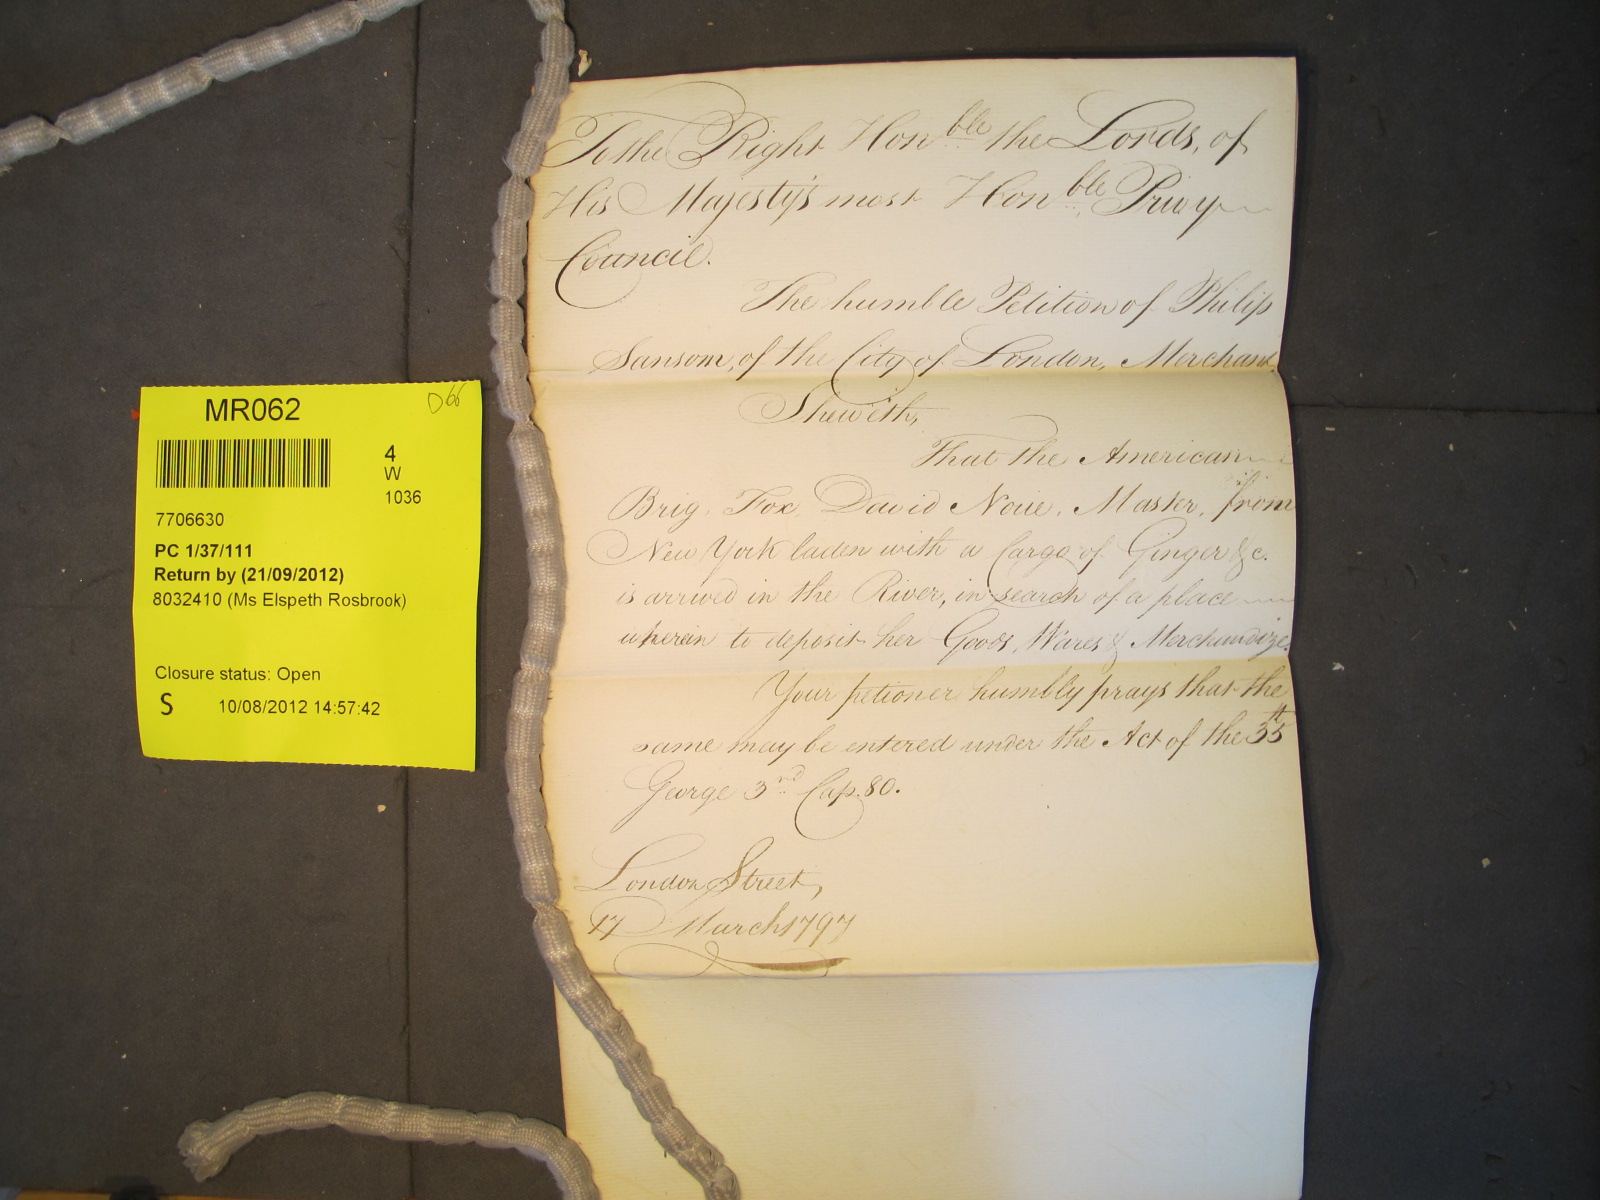 MR062
D66
4
W
1036
7706630
PC 1/37/111
Return by (21/09/2012)
8032410 (Ms Elspeth Rosbrook)
Closure status: Open
S 10/08/2012 14:57:42
To the Right Honble the Lords, of
His Majesty's most Honble Privy
Council.
The humble Petition of Philip
Sansom, of the City of London, Merchant,
Sheweth,
That the American
Brig, Fox, David Master, from
New York laden with a Cargo of Ginger &c.
is arrived in the River, in search of a place
wherein to deposit her Goods, Wares & Merchandize.
Your petioner humbly prays that the
same may be entered under the Act of the 35th
George 3rd Cap. 80.
London Street,
17 March 1797